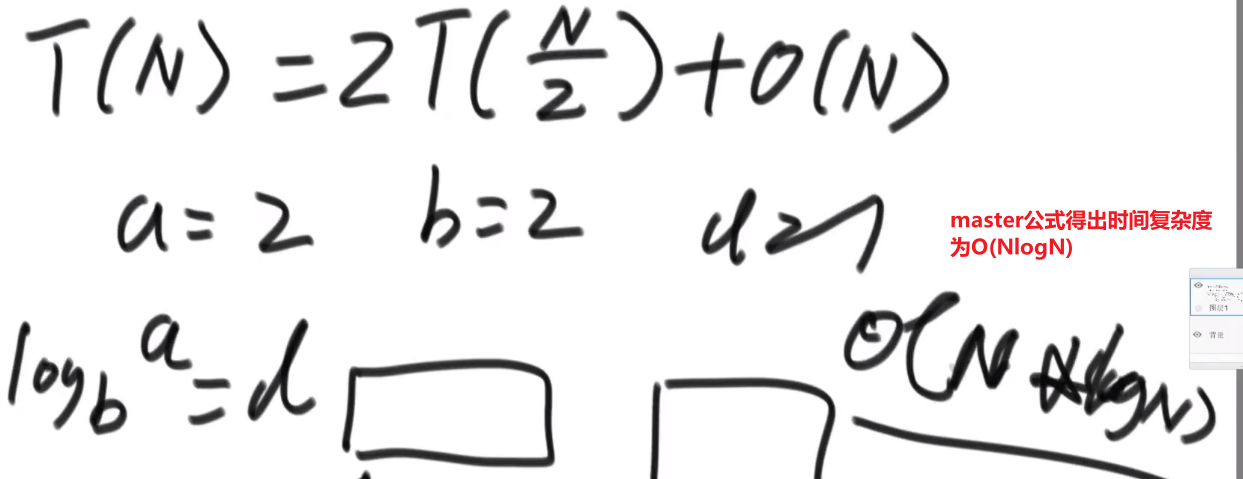 T(N) = 2T(N/2) + O(N)
a = 2 b = 2 d = 1
master公式得出时间复杂度
为O(NlogN)
log_b a = d
O(N * logN)
图层1
背景